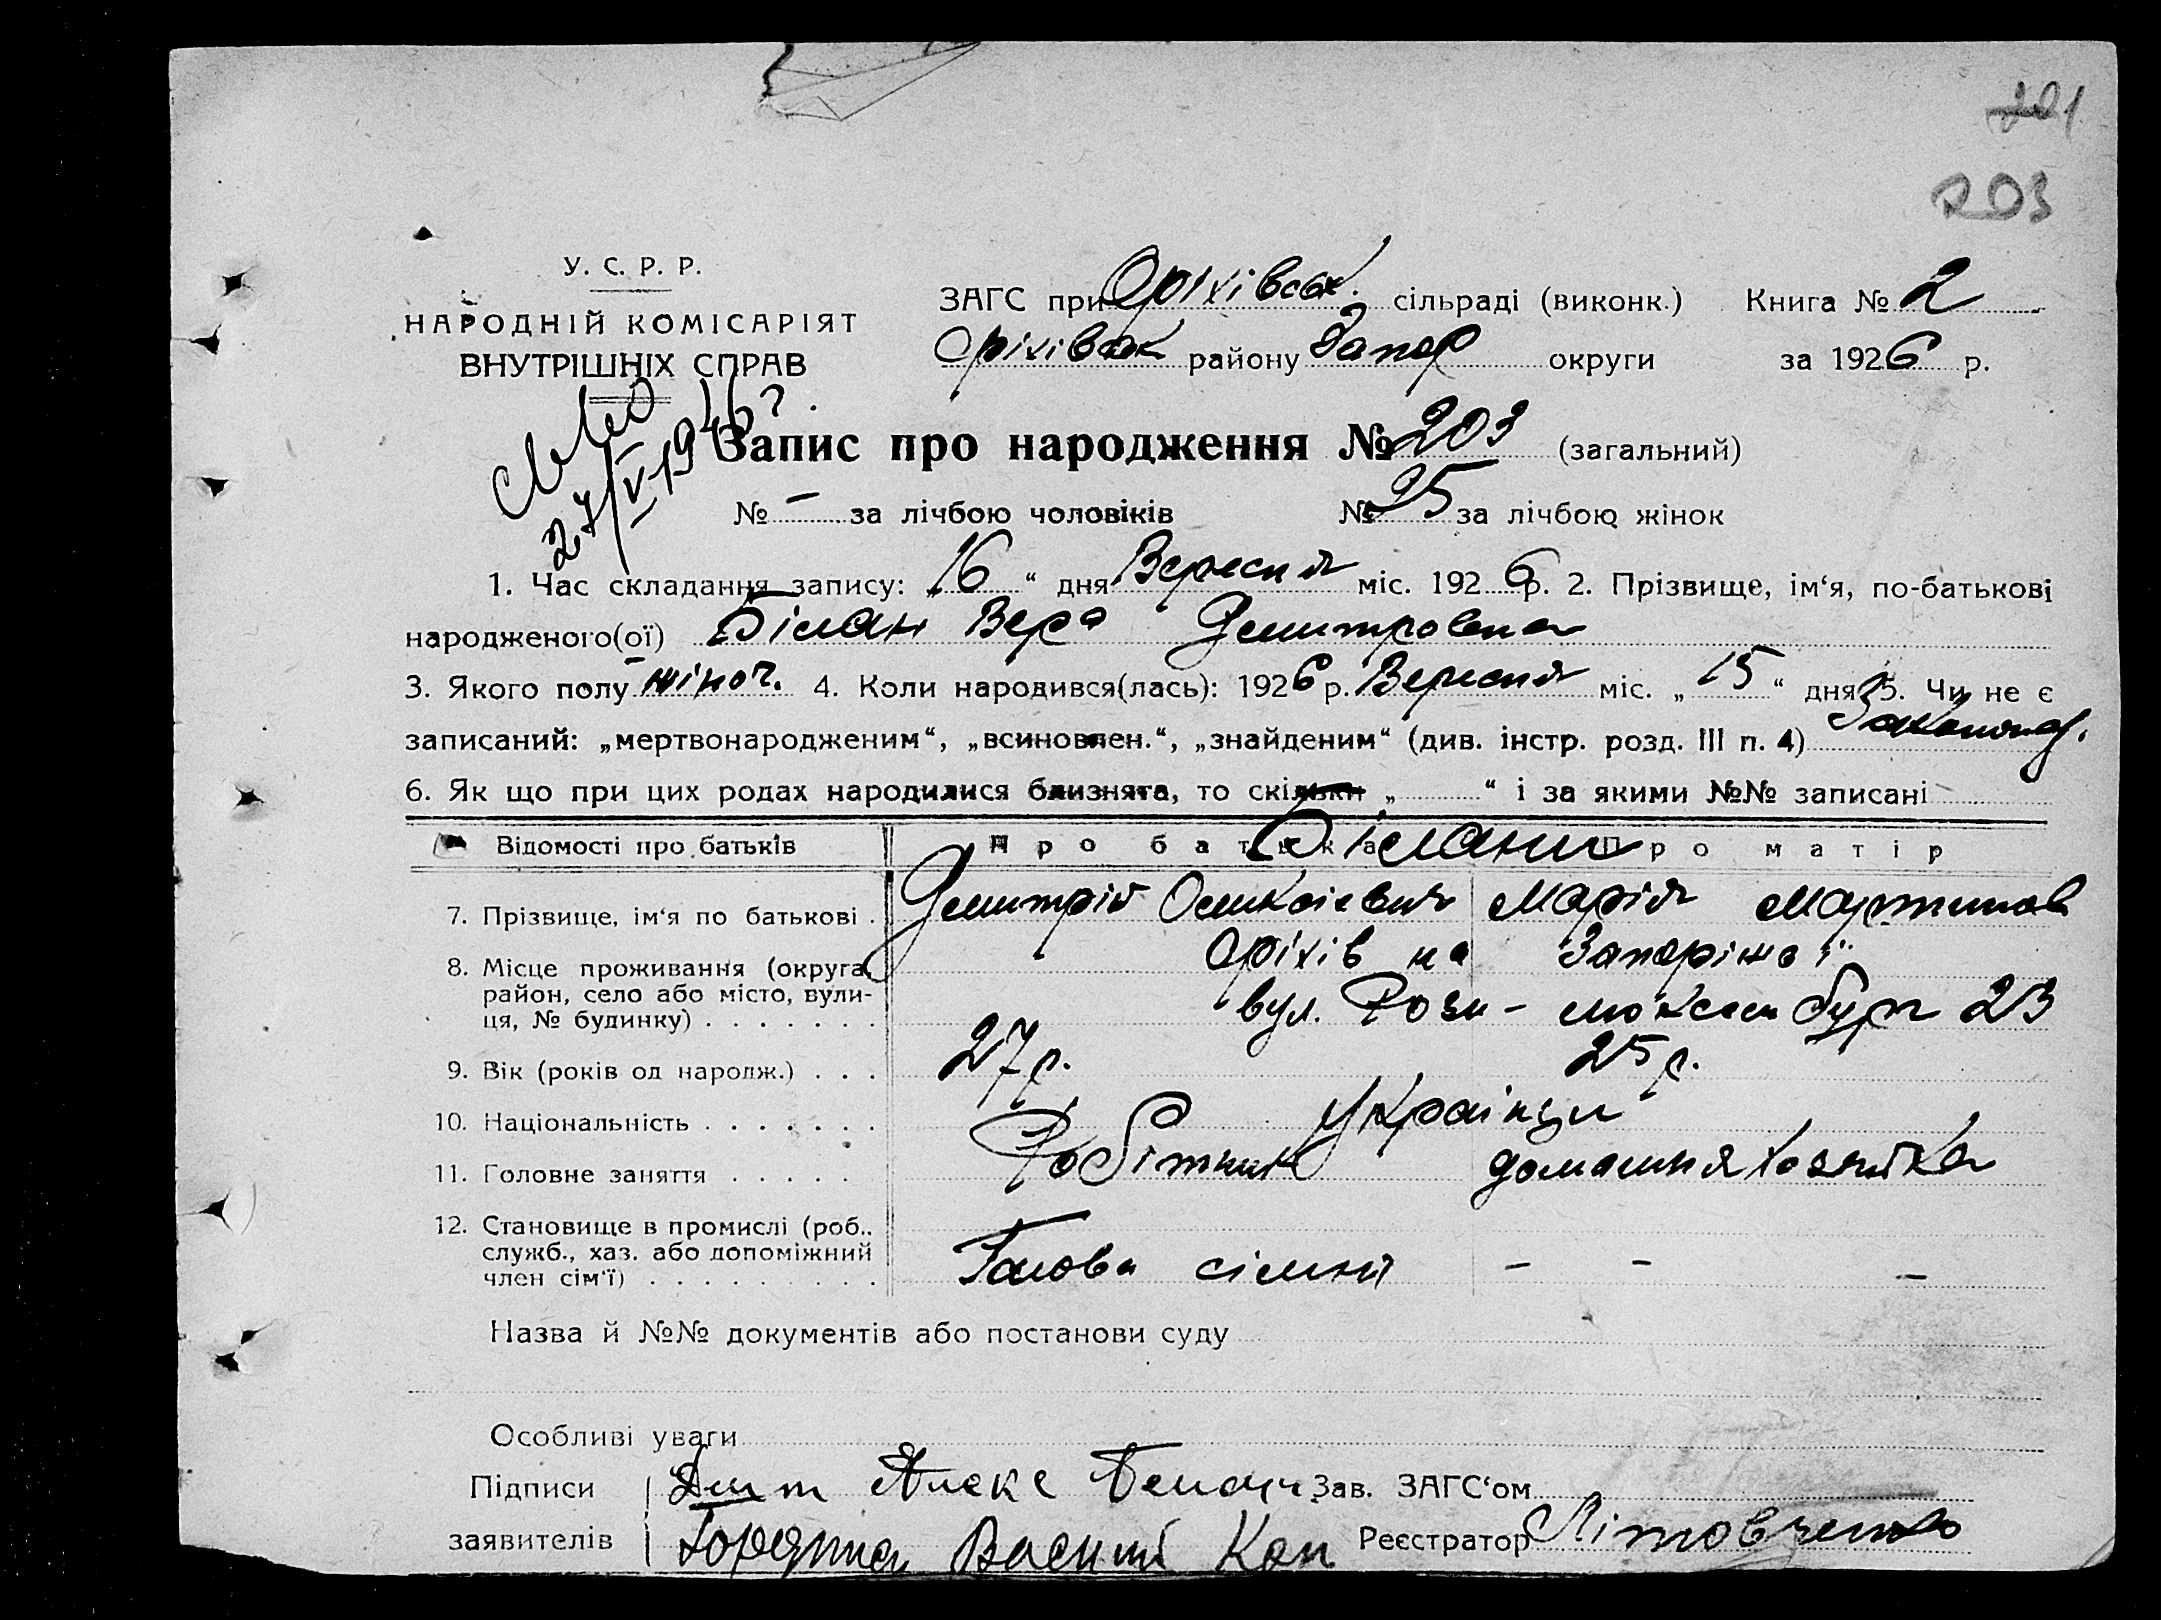 201
203
У. С. Р. Р.
НАРОДНІЙ КОМІСАРІЯТ
ВНУТРІШНІХ СПРАВ
ЗАГС при Оріхівськ. сільраді (виконк.) Книга № 2
Оріхівск району Запор округи за 1926 р.
27/V-1946 г.
Запис про народження № 203 (загальний)
№ – за лічбою чоловіків № 95 за лічбою жінок
1. Час складання запису: „16“ дня Вересня міс. 1926 р. 2. Прізвище, ім‘я, по-батькові
народженого(ої) Білан Вера Демитровна
3. Якого полу жіноч. 4. Коли народився(лась): 1926 р. Вересня міс. „15“ дня 5. Чи не є
записаний: „мертвонародженим“, „всиновлен.“, „знайденим“ (див. інстр. розд. III п. 4)
6. Як що при цих родах народилися близнята, то скільки „ “ і за якими №№ записані
Відомості про батьків Про батька Про матір
Білани
7. Прізвище, ім‘я по батькові . Демитрій Марія Мартинов
8. Місце проживання (округа, Оріхів на Запоріжж
район, село або місто, вули-
ця, № будинку) . . . . . . . вул. Рози - люксембург 23
9. Вік (років од народж.) . . . 27 р. 25 р.
10. Національність . . . . . . . Українци
11. Головне заняття . . . . . Робітник домашня хозяйка
12. Становище в промислі (роб.,
служб., хаз. або допоміжний
член сім‘ї) . . . . . . . . . Голова сімнї – – –
Назва й №№ документів або постанови суду
Особливі уваги
Підписи Дмит Алекс Зав. ЗАГС‘ом
заявителів Василий Реєстратор Літовченко